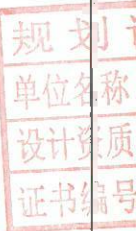 规划
单位名称
设计资质
证书编号